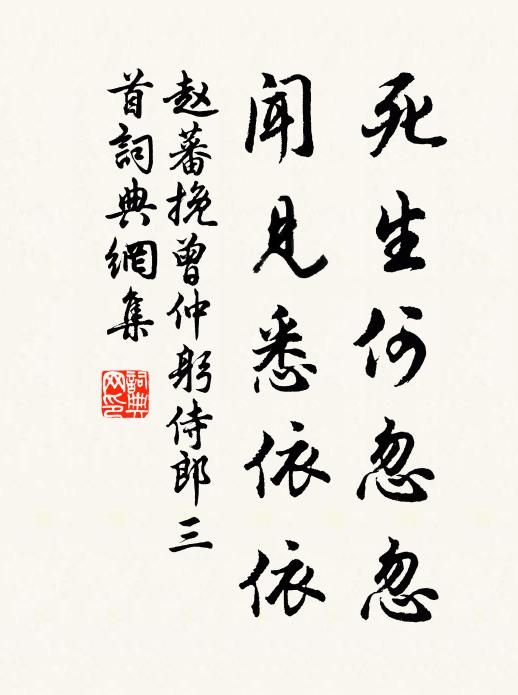 死生何忽忽
闻見悉依依
赵蕃挽曾仲躬侍郎三
首詞典網集
詞典网印